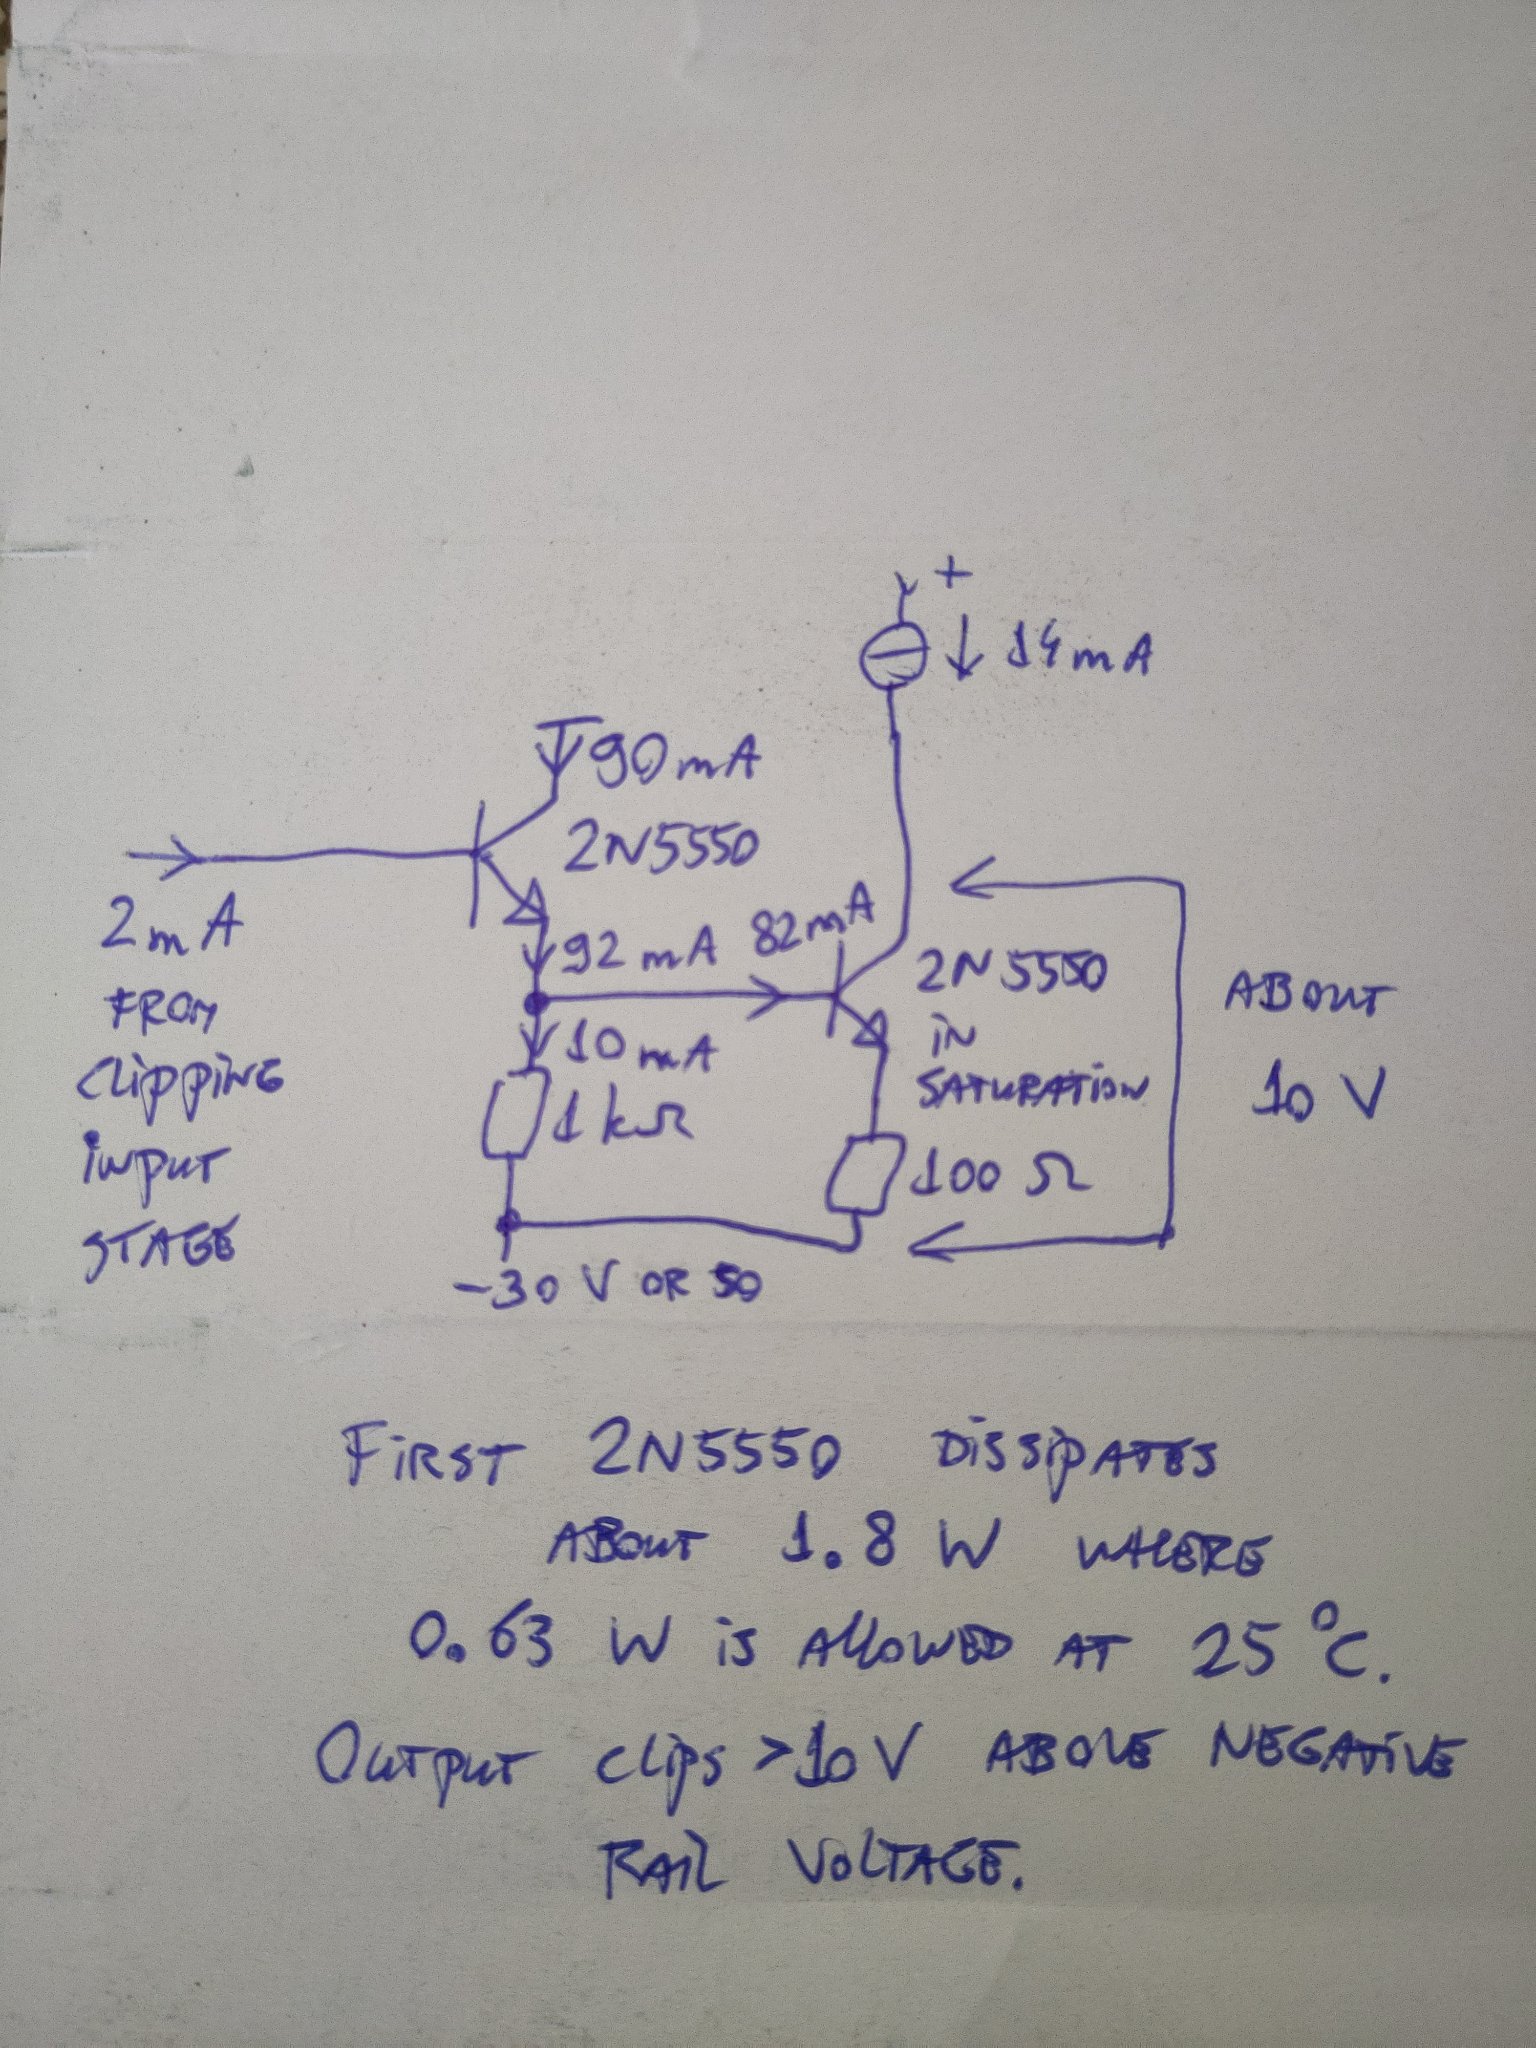 +
14mA
90mA
2N5550
2mA
FROM
CLIPPING
INPUT
STAGE
92mA
82mA
2N5550
IN
SATURATION
ABOUT
10 V
10mA
1kΩ
100 Ω
-30 V OR 50
FIRST 2N5550 DISSIPATES
ABOUT 1.8 W WHERE
0.63 W IS ALLOWED AT 25 °C.
OUTPUT CLIPS >10V ABOVE NEGATIVE
RAIL VOLTAGE.